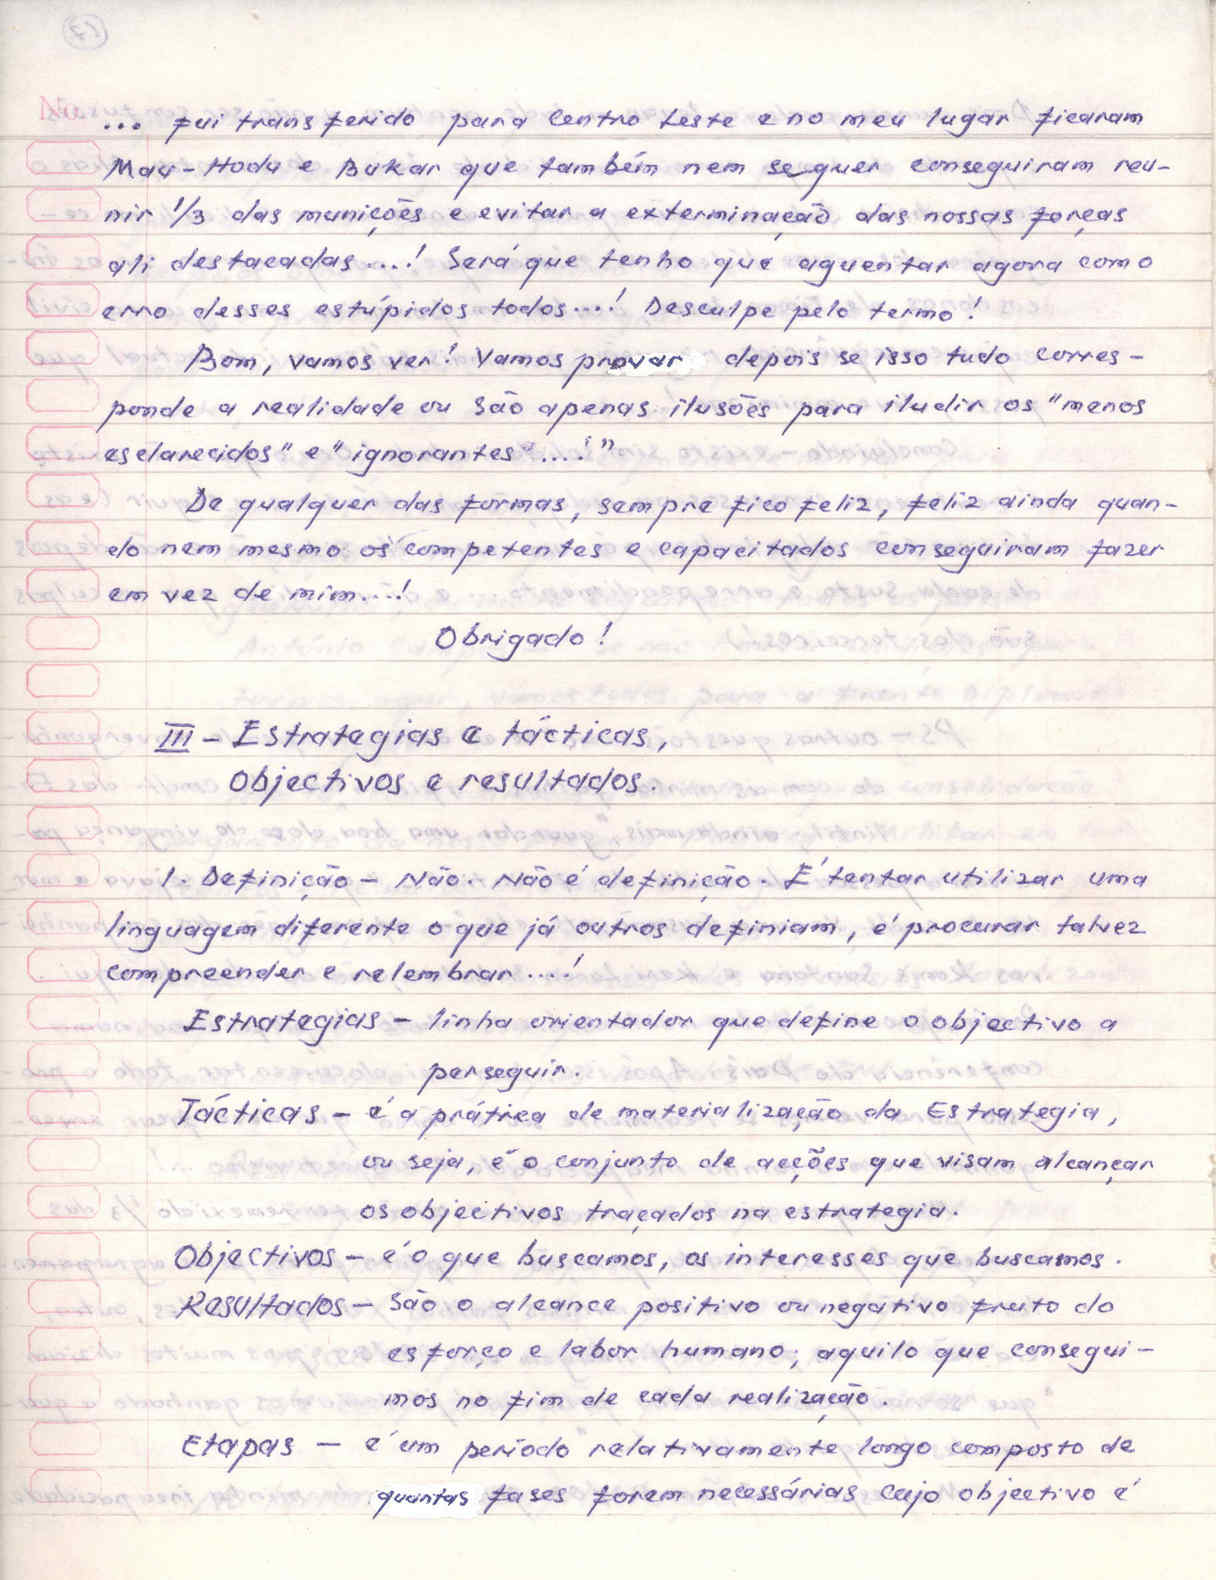 ... fui transferido para Centro Leste e no meu lugar ficaram
Mau-Hodu e Bukar que também nem sequer conseguiram reu-
nir 1/3 das munições e evitar a exterminação das nossas forças
ali destacadas....! Será que tenho que aguentar agora como
erro desses estúpidos todos....! Desculpe pelo termo!
Bom, vamos ver! Vamos provar depois se isso tudo corres-
ponde a realidade ou são apenas ilusões para iludir os "menos
esclarecidos" e "ignorantes"....!"
De qualquer das formas, sempre fico feliz, feliz ainda quan-
do nem mesmo os competentes e capacitados conseguiram fazer
em vez de mim....!
Obrigado!
III - Estrategias e tácticas,
Objectivos e resultados.
1. Definição - Não. Não é definição. É tentar utilizar uma
linguagem diferente o que já outros definiam, é procurar talvez
compreender e relembrar....!
Estrategias - linha orientador que define o objectivo a
perseguir.
Tácticas - é a prática de materialização da Estrategia,
ou seja, é o conjunto de acções que visam alcançar
os objectivos traçados na estrategia.
Objectivos - é o que buscamos, os interesses que buscamos.
Resultados - São o alcance positivo ou negativo fruto do
esforço e labor humano; aquilo que consegui-
mos no fim de cada realização.
Etapas - é um período relativamente longo composto de
quantas fases forem necessárias cujo objectivo é